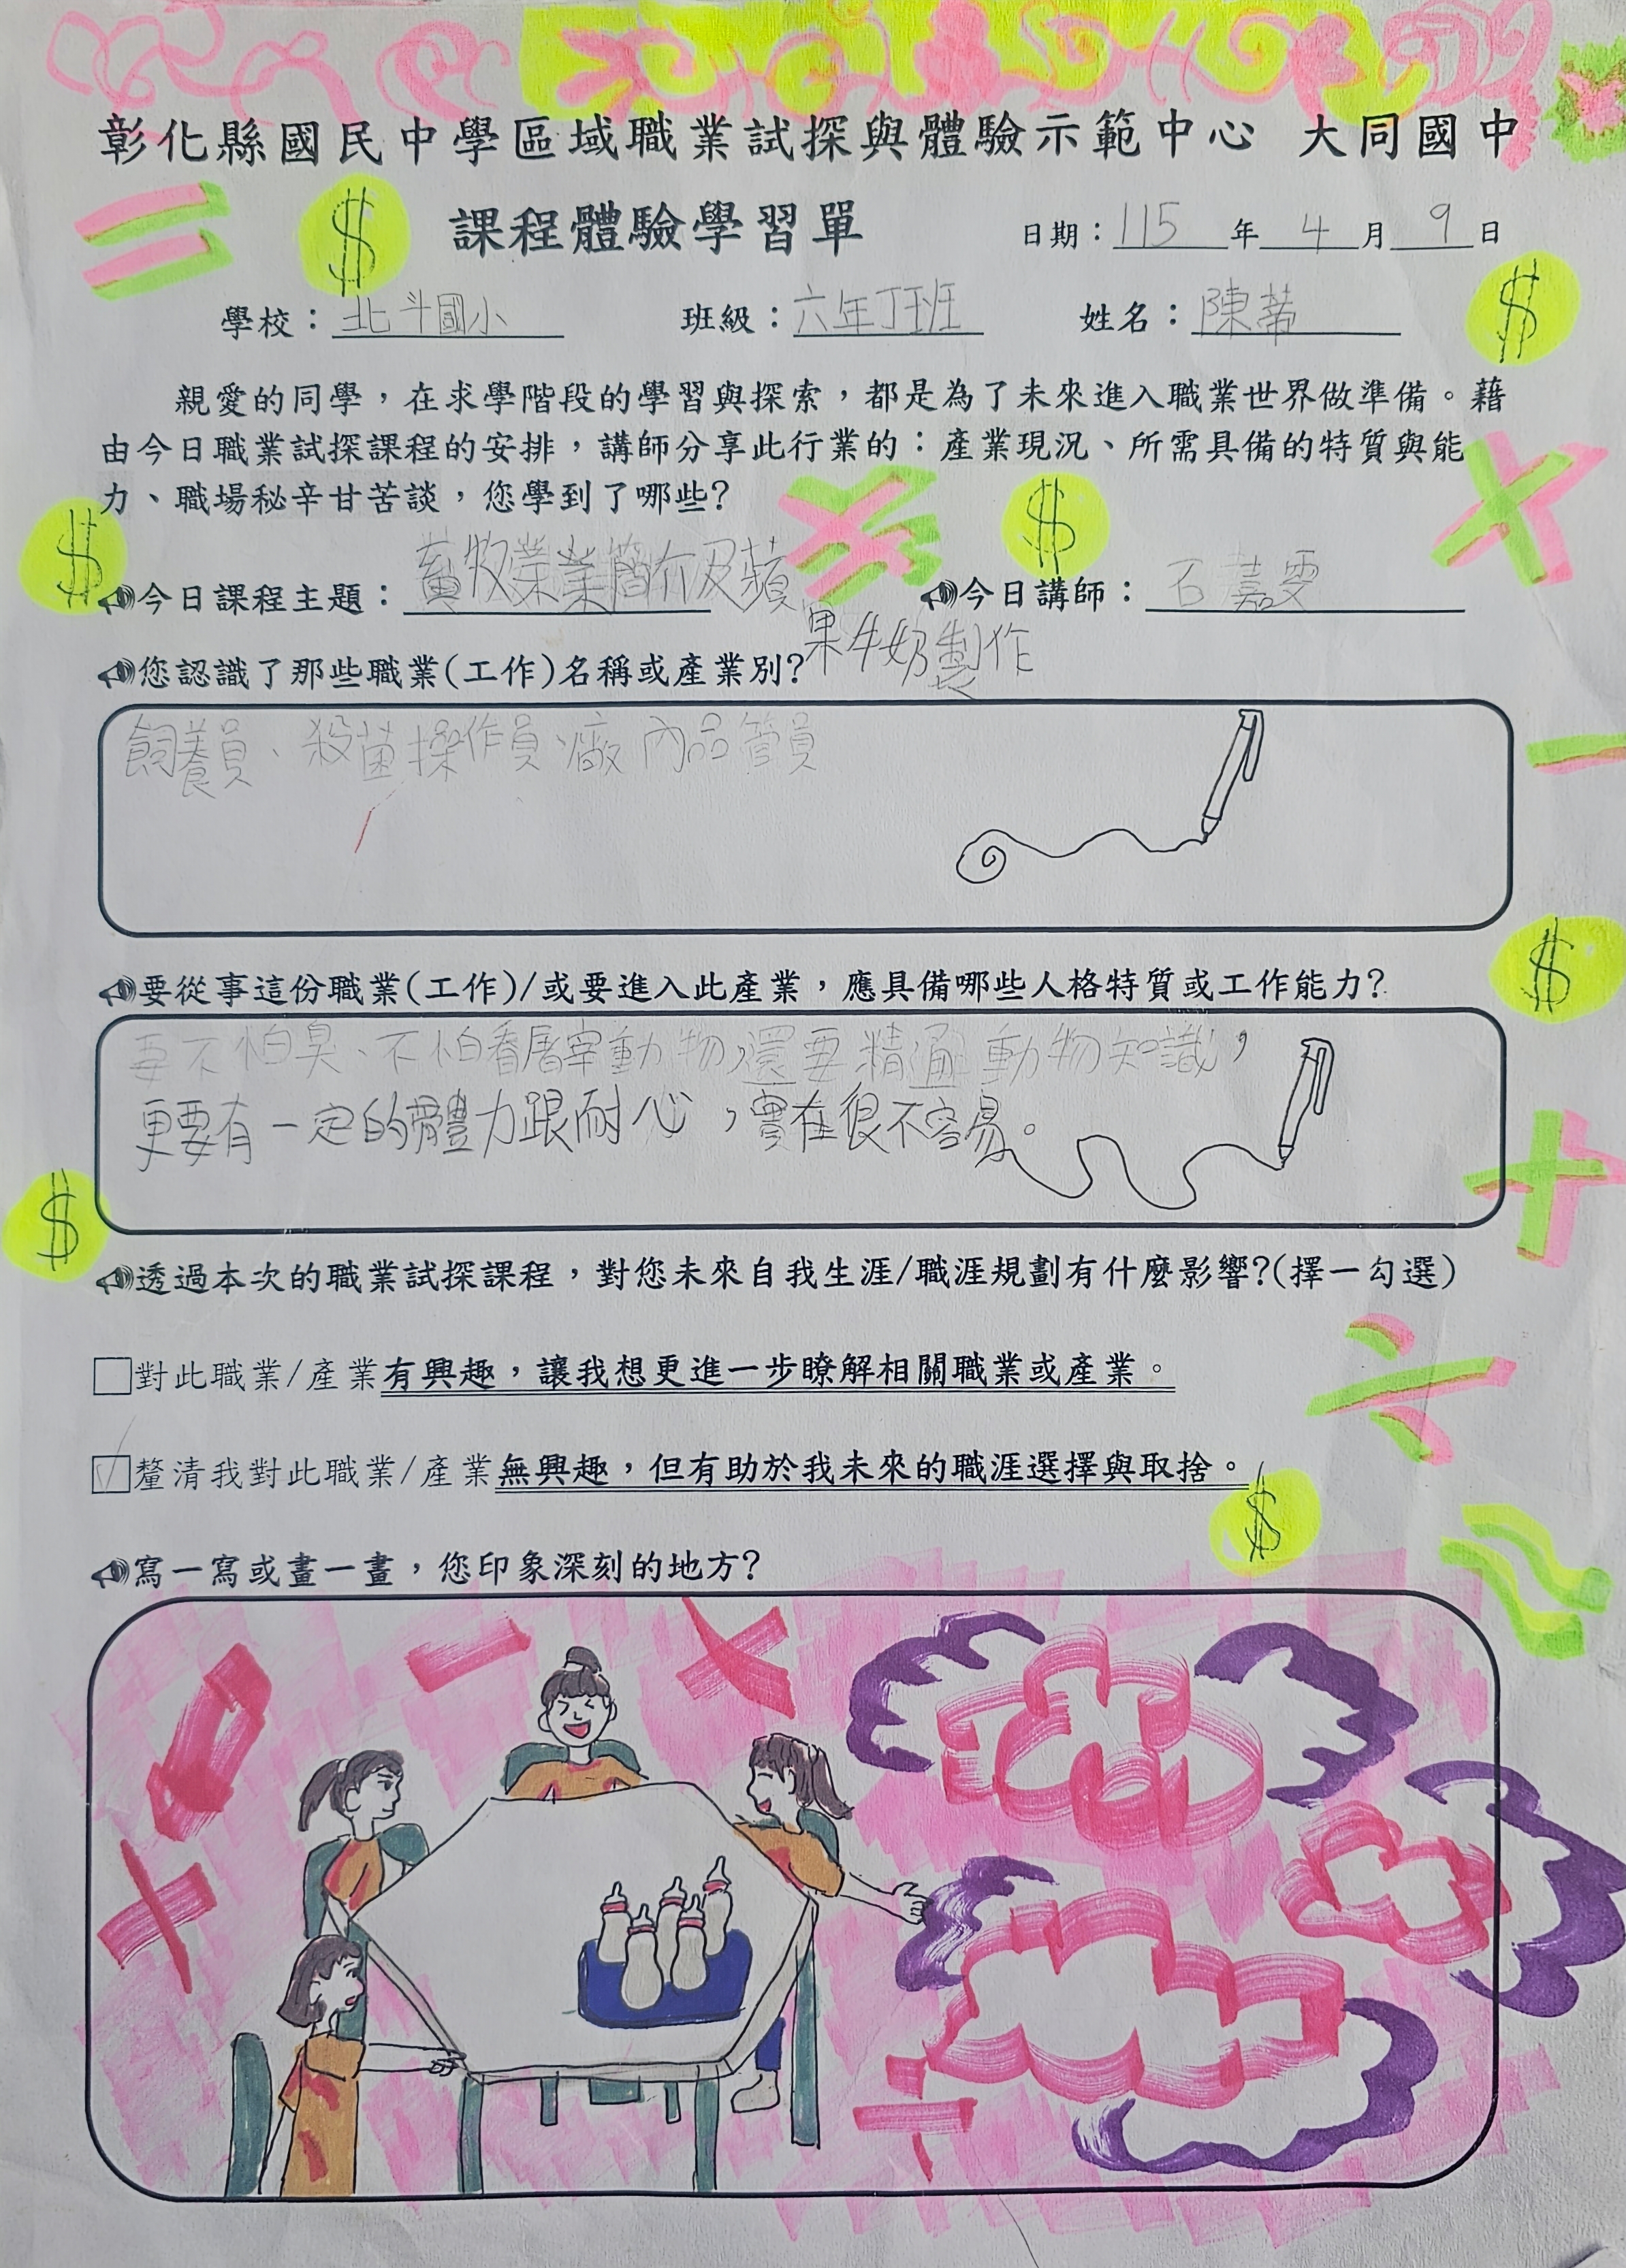 彰化縣國民中學區域職業試探與體驗示範中心 大同國中
課程體驗學習單
日期：115年4月9日
學校：北斗國小 班級：六年丁班 姓名：陳蒂
親愛的同學，在求學階段的學習與探索，都是為了未來進入職業世界做準備。藉
由今日職業試探課程的安排，講師分享此行業的：產業現況、所需具備的特質與能
力、職場秘辛甘苦談，您學到了哪些？
今日課程主題：畜牧業業簡介及蘋果牛奶製作 今日講師：石嘉雯
您認識了那些職業(工作)名稱或產業別？
飼養員、殺菌操作員、廠內品管員
要從事這份職業(工作)/或要進入此產業，應具備哪些人格特質或工作能力？
要不怕臭、不怕看屠宰動物，還要精通動物知識，
更要有一定的體力跟耐心，實在很不容易。
透過本次的職業試探課程，對您未來自我生涯/職涯規劃有什麼影響？(擇一勾選)
□對此職業/產業有興趣，讓我想更進一步瞭解相關職業或產業。
☑釐清我對此職業/產業無興趣，但有助於我未來的職涯選擇與取捨。
寫一寫或畫一畫，您印象深刻的地方？
$
$
$
$
$
$
$